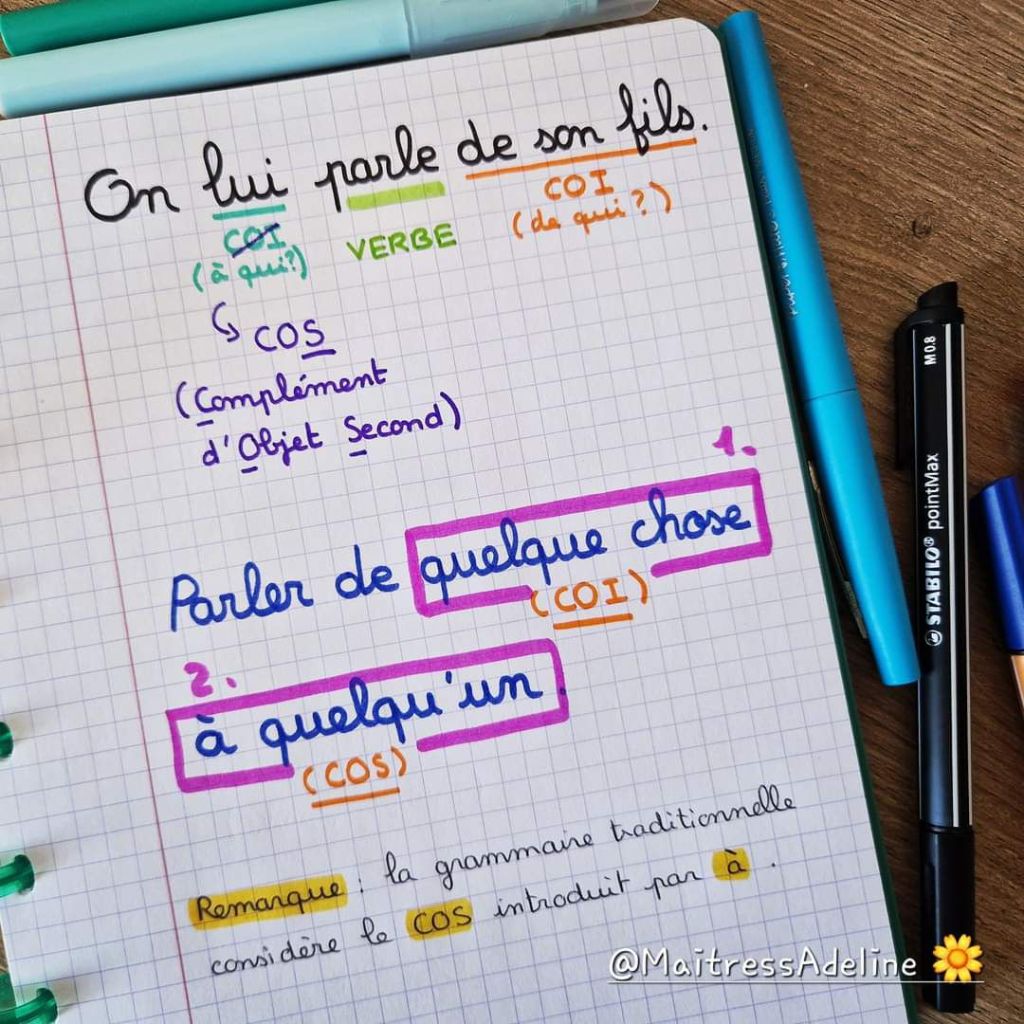 On lui parle de son fils.
COI
(à qui?)
VERBE
COI
(de qui?)
COS
(Complément
d'Objet Second)
1.
Parler de quelque chose
(COI)
2.
à quelqu'un.
(COS)
Remarque : la grammaire traditionnelle
considère le COS introduit par à.
@MaitressAdeline
STABILO® pointMax
M 0.8